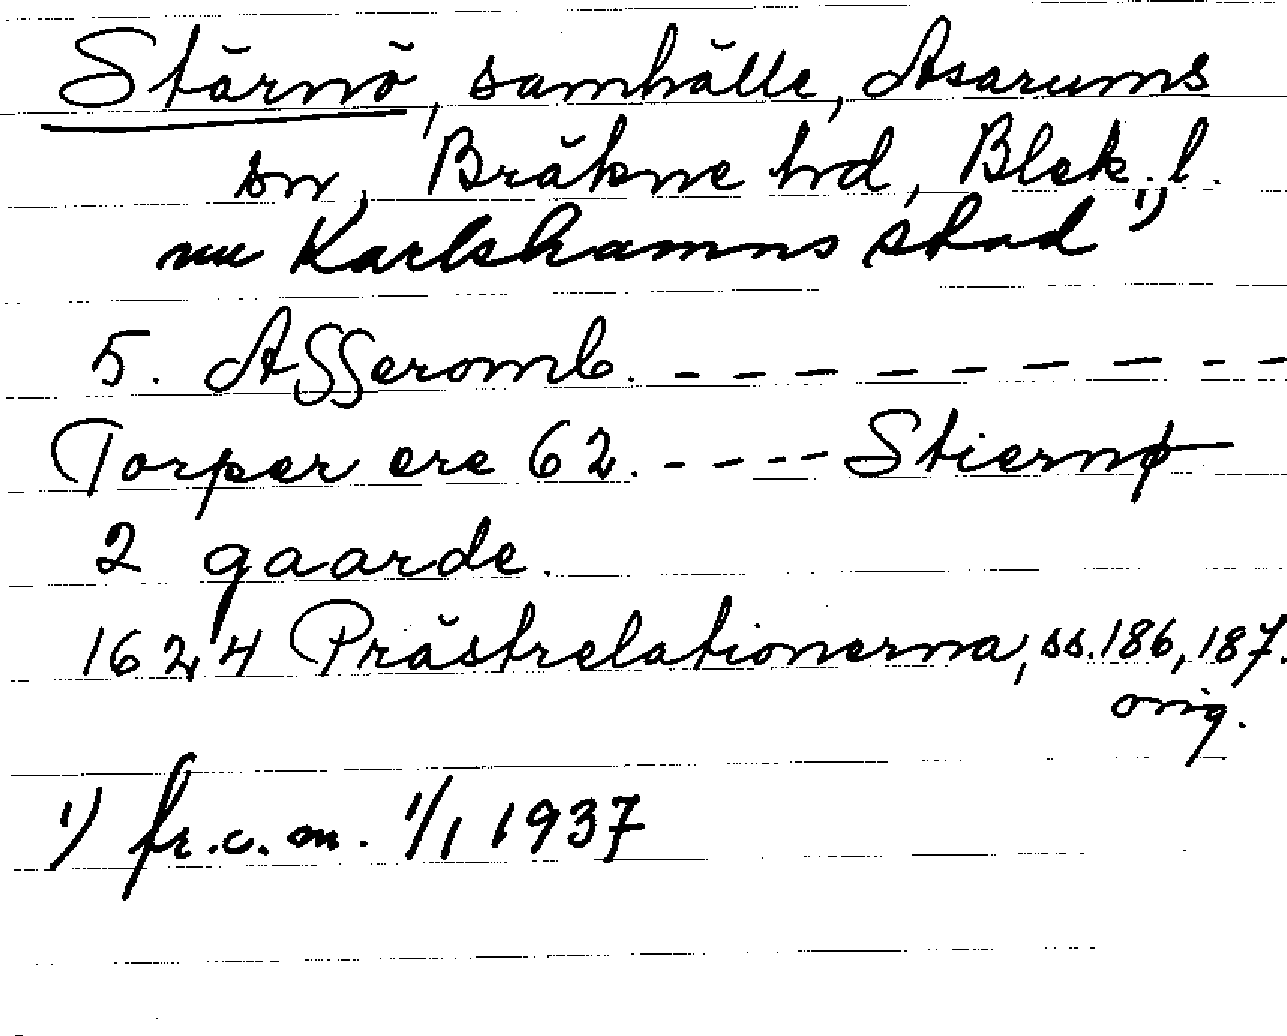 Stärnö, samhälle, Asarums
sn, Bräkne hrd, Blek. l.
nu Karlshamns stad ¹)
5. Asseromb. - - - - - - - - - -
Torper ere 62. - - - - Stiernø
2 gaarde.
1624 Prästrelationerna, ss. 186, 187.
orig.
¹) fr.o.m. 1/1 1937